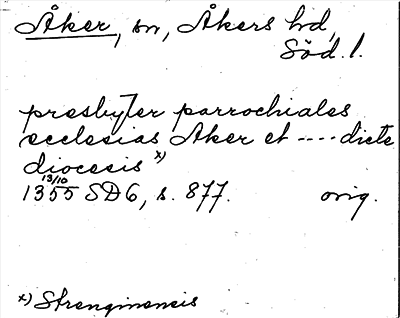 Åker, sn, Åkers hd,
Söd. l.
presbyter parrochiales
ecclesias Aker et ---- dicte
diocesis x)
13/10
1355 SD6, s. 877. orig.
x) Strenginensis